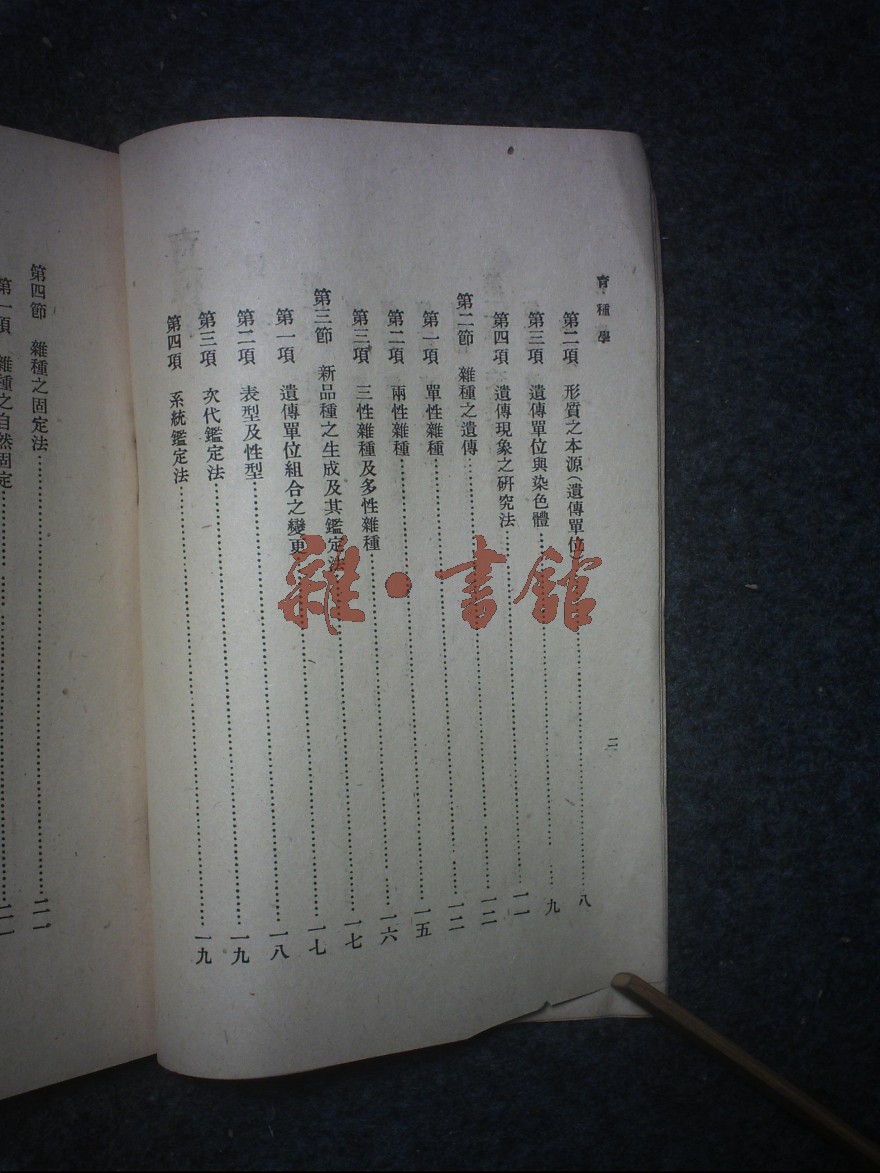 育種學
二
第二項 形質之本源(遺傳單位……八
第三項 遺傳單位與染色體……九
第四項 遺傳現象之研究法……一一
第二節 雜種之遺傳……一二
第一項 單性雜種……一二
第二項 兩性雜種……一五
第三項 三性雜種及多性雜種……一六
第三節 新品種之生成及其鑑定法……一七
第一項 遺傳單位組合之變更……一七
第二項 表型及性型……一八
第三項 次代鑑定法……一九
第四項 系統鑑定法……一九
第四節 雜種之固定法……二一
第一項 雜種之自然固定……二一
雜·書館